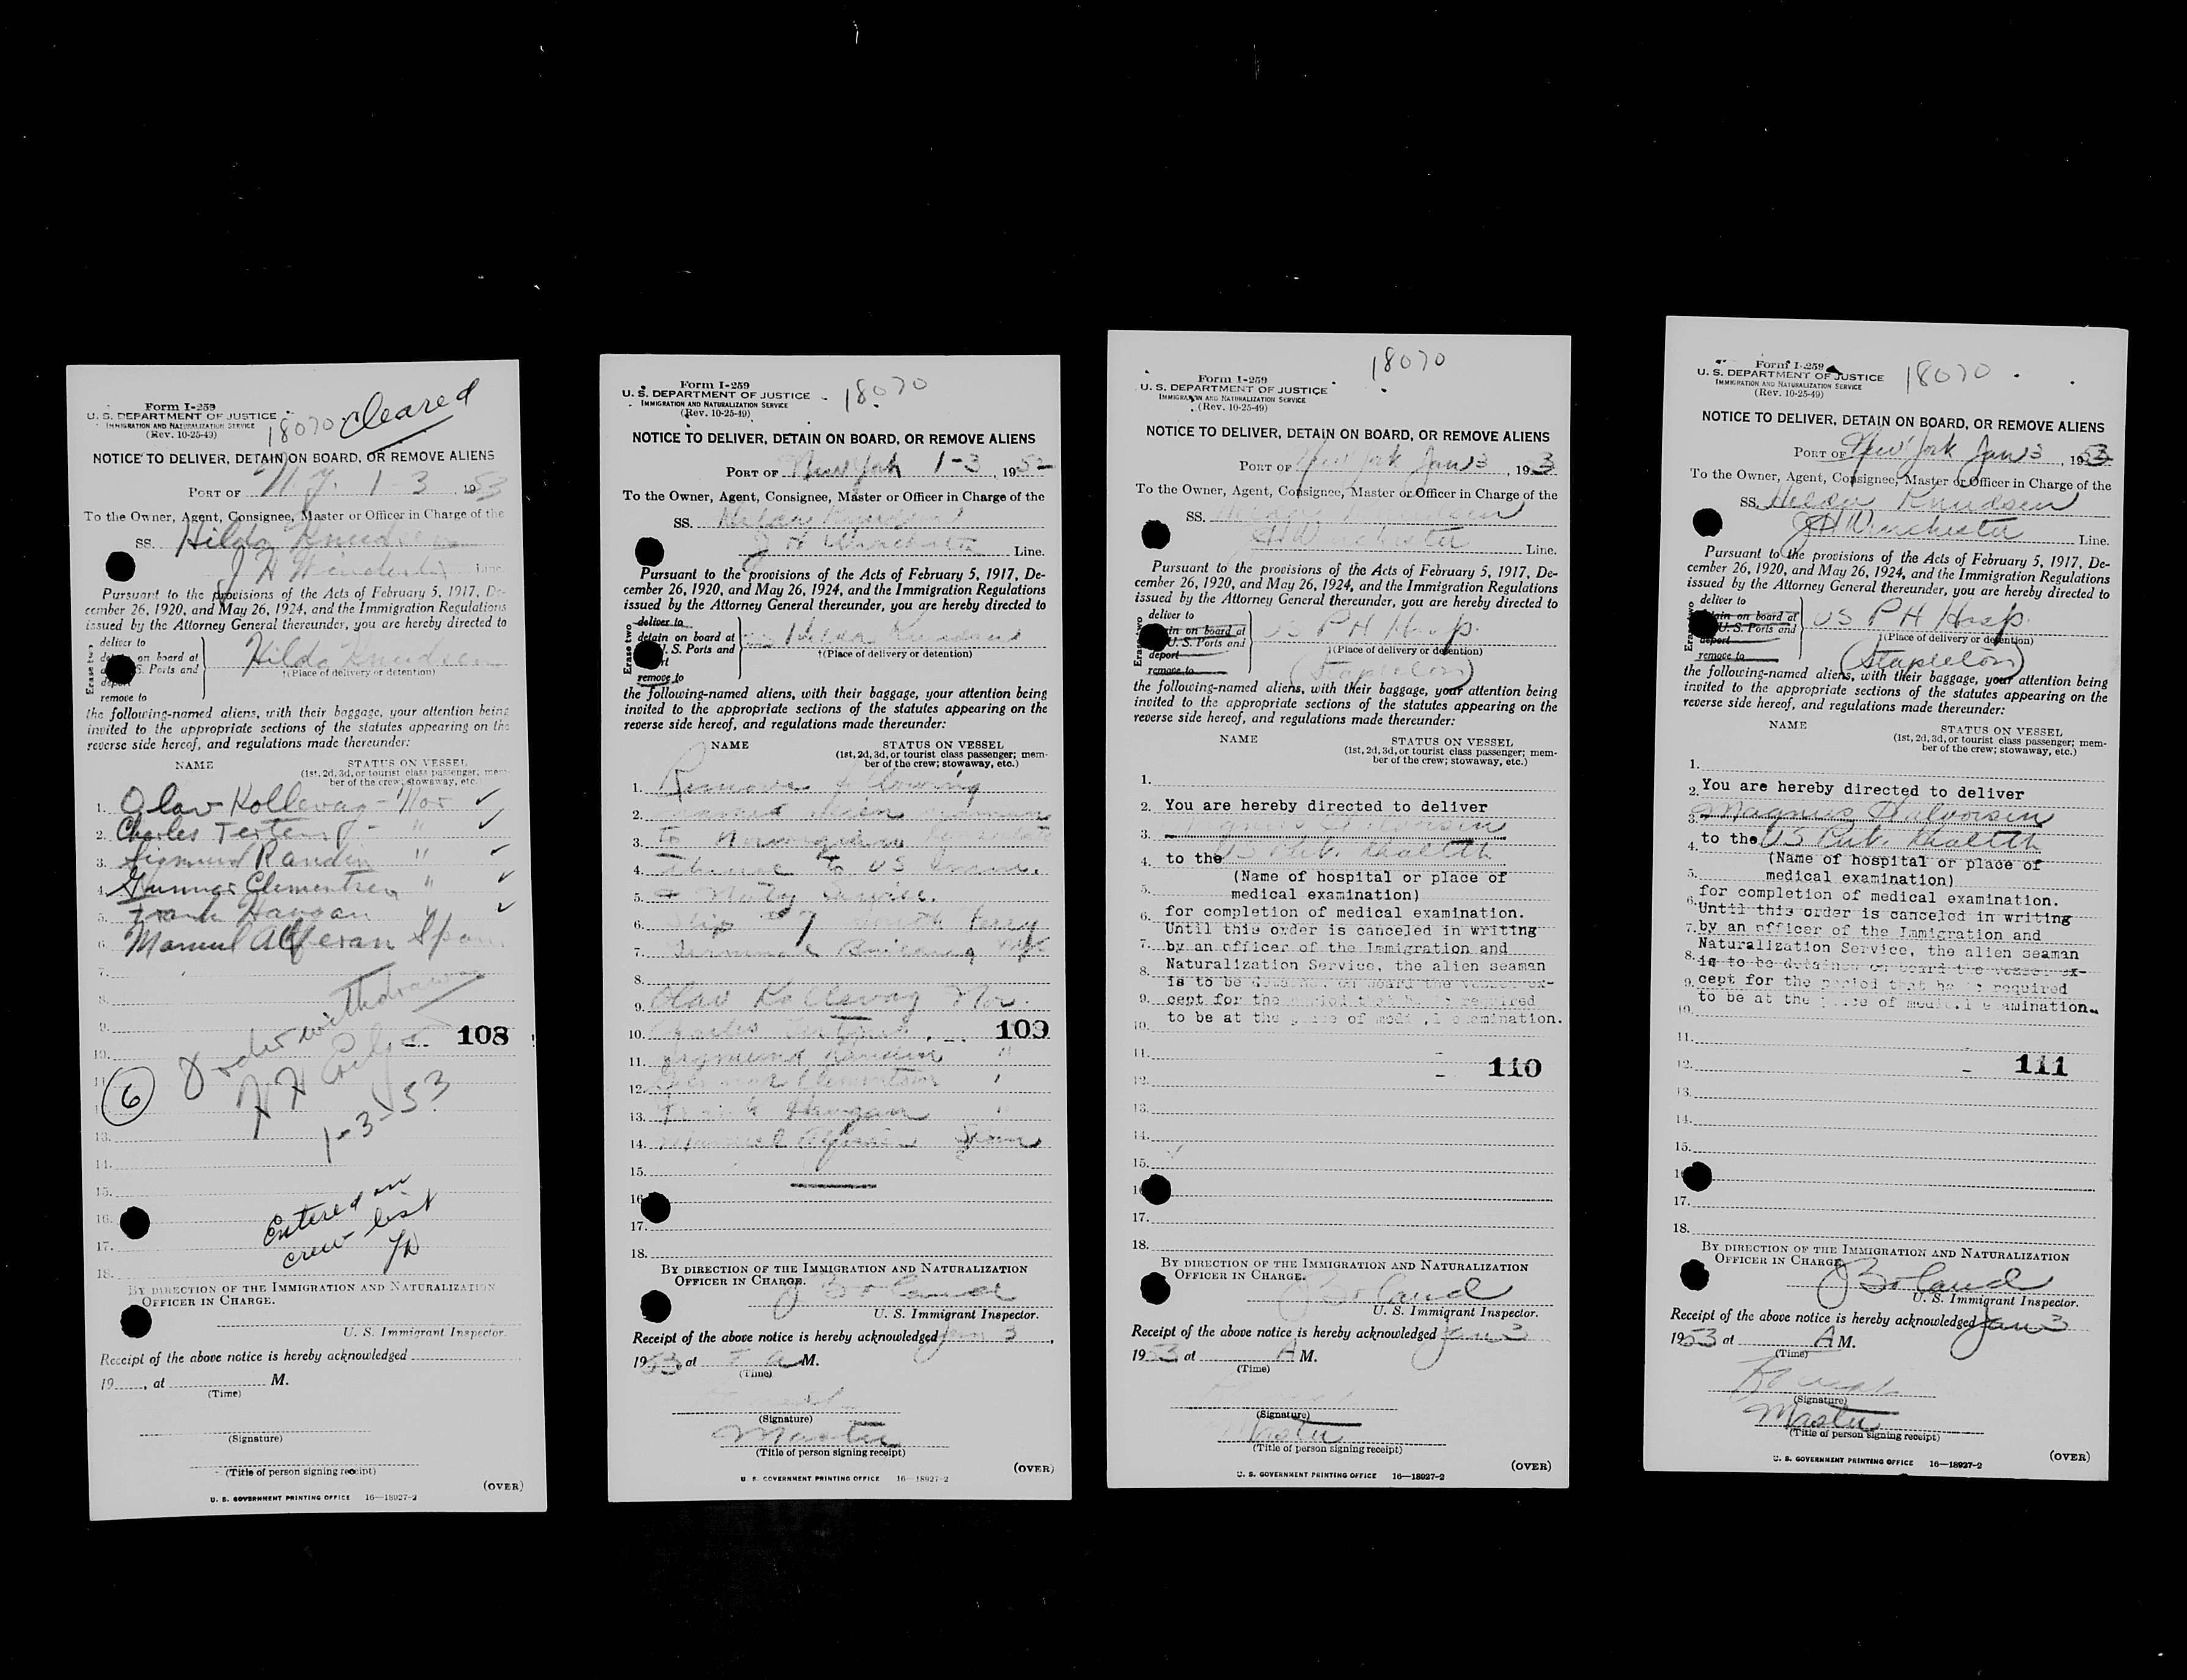 Form I-259
U. S. DEPARTMENT OF JUSTICE
IMMIGRATION AND NATURALIZATION SERVICE
(Rev. 10-25-49)
18070 cleared
NOTICE TO DELIVER, DETAIN ON BOARD, OR REMOVE ALIENS
PORT OF N.Y. 1-3, 1953
To the Owner, Agent, Consignee, Master or Officer in Charge of the
SS. Hilda Knudsen
J H Winchester Line
Pursuant to the provisions of the Acts of February 5, 1917, De-
cember 26, 1920, and May 26, 1924, and the Immigration Regulations
issued by the Attorney General thereunder, you are hereby directed to
Erase two
deliver to
on board at
S. Ports and
deport
remove to
Hilda Knudsen
†(Place of delivery or detention)
the following-named aliens, with their baggage, your attention being
invited to the appropriate sections of the statutes appearing on the
reverse side hereof, and regulations made thereunder:
NAME STATUS ON VESSEL
(1st, 2d, 3d, or tourist class passenger; mem-
ber of the crew; stowaway, etc.)
1. Olav Kollevag - Nor ✓
2. Charles - " ✓
3. Sigmund Randin " ✓
4. Gunnar Clementsen " ✓
5. Frank Haugan " ✓
6. Span
7.
8.
9.
108
10. Order withdrawn
11.
6
1-3-53
13.
14.
15.
16. Entered on
17. crew list
18.
BY DIRECTION OF THE IMMIGRATION AND NATURALIZATION
OFFICER IN CHARGE.
U. S. Immigrant Inspector.
Receipt of the above notice is hereby acknowledged
19, at M.
(Time)
(Signature)
(Title of person signing receipt)
(OVER)
U. S. GOVERNMENT PRINTING OFFICE 16—18927-2
Form I-259
U. S. DEPARTMENT OF JUSTICE
IMMIGRATION AND NATURALIZATION SERVICE
(Rev. 10-25-49)
18070
NOTICE TO DELIVER, DETAIN ON BOARD, OR REMOVE ALIENS
PORT OF New York 1-3, 195
To the Owner, Agent, Consignee, Master or Officer in Charge of the
SS. Hilda Knudsen
J H Winchester Line.
Pursuant to the provisions of the Acts of February 5, 1917, De-
cember 26, 1920, and May 26, 1924, and the Immigration Regulations
issued by the Attorney General thereunder, you are hereby directed to
Erase two
deliver to
detain on board at
S. Ports and
remove to
Hilda Knudsen
†(Place of delivery or detention)
the following-named aliens, with their baggage, your attention being
invited to the appropriate sections of the statutes appearing on the
reverse side hereof, and regulations made thereunder:
NAME STATUS ON VESSEL
(1st, 2d, 3d, or tourist class passenger; mem-
ber of the crew; stowaway, etc.)
1. Remove following
2. named alien seamen
3. To Norwegian Consulate
4. thence to US Imm.
5. Service.
6. Slip #7 South Ferry
7. Building
8.
9. Olav Kollevag Nor.
10. Charles
109
11. Sigmund Randin "
12. Clementsen "
13. Frank Haugan "
14. Span
15.
16
17.
18.
BY DIRECTION OF THE IMMIGRATION AND NATURALIZATION
OFFICER IN CHARGE.
J Boland
U. S. Immigrant Inspector.
Receipt of the above notice is hereby acknowledged Jan 3,
1953, at A M.
(Time)
(Signature)
Master
(Title of person signing receipt)
(OVER)
U. S. GOVERNMENT PRINTING OFFICE 16—18927-2
18070
Form I-259
U. S. DEPARTMENT OF JUSTICE
IMMIGRATION AND NATURALIZATION SERVICE
(Rev. 10-25-49)
NOTICE TO DELIVER, DETAIN ON BOARD, OR REMOVE ALIENS
PORT OF New York Jan 3, 1953
To the Owner, Agent, Consignee, Master or Officer in Charge of the
SS. Hilda Knudsen
JH Winchester Line.
Pursuant to the provisions of the Acts of February 5, 1917, De-
cember 26, 1920, and May 26, 1924, and the Immigration Regulations
issued by the Attorney General thereunder, you are hereby directed to
deliver to
on board at
U. S. Ports and
deport
remove to
US PH Hosp.
†(Place of delivery or detention)
(Stapleton)
the following-named aliens, with their baggage, your attention being
invited to the appropriate sections of the statutes appearing on the
reverse side hereof, and regulations made thereunder:
NAME STATUS ON VESSEL
(1st, 2d, 3d, or tourist class passenger; mem-
ber of the crew; stowaway, etc.)
1.
2. You are hereby directed to deliver
3. Magnus Halvorsen
4. to the US Pub. Health
(Name of hospital or place of
5. medical examination)
6. for completion of medical examination.
Until this order is canceled in writing
7. by an officer of the Immigration and
8. Naturalization Service, the alien seaman
is to be detained on board the vessel ex-
9. cept for the period that he is required
10. to be at the place of medical examination.
11.
110
12.
13.
14.
15.
17.
18.
BY DIRECTION OF THE IMMIGRATION AND NATURALIZATION
OFFICER IN CHARGE.
J Boland
U. S. Immigrant Inspector.
Receipt of the above notice is hereby acknowledged Jan 3
1953 at A M.
(Time)
(Signature)
Master
(Title of person signing receipt)
(OVER)
U. S. GOVERNMENT PRINTING OFFICE 16—18927-2
Form I-259
U. S. DEPARTMENT OF JUSTICE
IMMIGRATION AND NATURALIZATION SERVICE
(Rev. 10-25-49)
18070
NOTICE TO DELIVER, DETAIN ON BOARD, OR REMOVE ALIENS
PORT OF New York Jan 3, 1953
To the Owner, Agent, Consignee, Master or Officer in Charge of the
SS. Hilda Knudsen
JH Winchester Line.
Pursuant to the provisions of the Acts of February 5, 1917, De-
cember 26, 1920, and May 26, 1924, and the Immigration Regulations
issued by the Attorney General thereunder, you are hereby directed to
deliver to
on board at
U. S. Ports and
deport
remove to
US PH Hosp.
†(Place of delivery or detention)
(Stapleton)
the following-named aliens, with their baggage, your attention being
invited to the appropriate sections of the statutes appearing on the
reverse side hereof, and regulations made thereunder:
NAME STATUS ON VESSEL
(1st, 2d, 3d, or tourist class passenger; mem-
ber of the crew; stowaway, etc.)
1.
2. You are hereby directed to deliver
3. Magnus Halvorsen
4. to the US Pub. Health
(Name of hospital or place of
5. medical examination)
for completion of medical examination.
6. Until this order is canceled in writing
7. by an officer of the Immigration and
Naturalization Service, the alien seaman
8. is to be detained on board the vessel ex-
9. cept for the period that he is required
to be at the place of medical examination.
10.
11.
12. 111
13.
14.
15.
17.
18.
BY DIRECTION OF THE IMMIGRATION AND NATURALIZATION
OFFICER IN CHARGE.
J Boland
U. S. Immigrant Inspector.
Receipt of the above notice is hereby acknowledged Jan 3
1953 at A M.
(Time)
(Signature)
Master
(Title of person signing receipt)
(OVER)
U. S. GOVERNMENT PRINTING OFFICE 16—18927-2